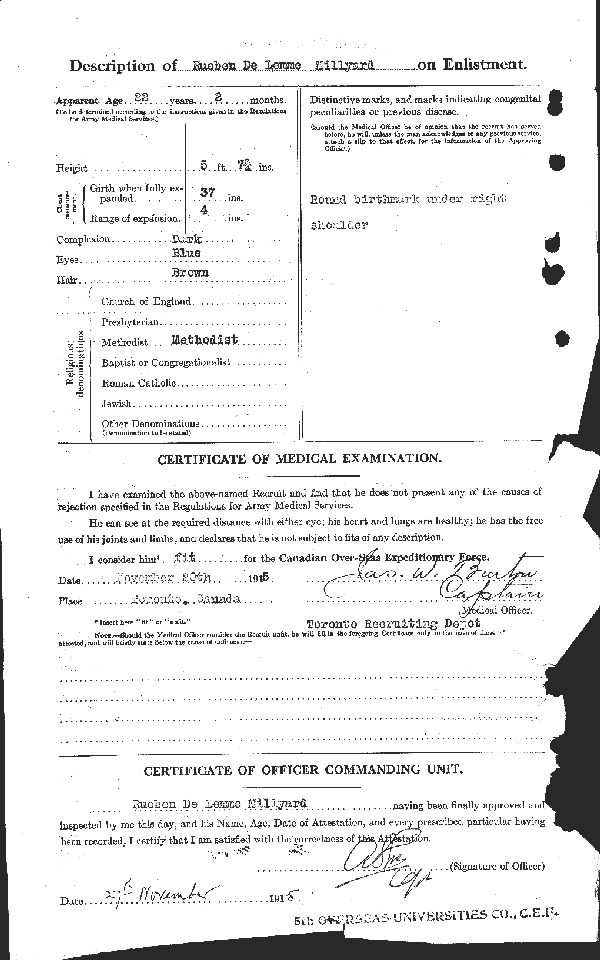 Description of Rueben De Lomme Millyard on Enlistment.
Apparent Age 22 years 2 months.
(To be determined according to the instructions given in the Regulations for Army Medical Services.)
Height 5 ft. 7½ ins.
Chest measurement.
Girth when fully expanded 37 ins.
Range of expansion 4 ins.
Complexion Dark
Eyes Blue
Hair Brown
Religious denominations
Church of England
Presbyterian
Methodist Methodist
Baptist or Congregationalist
Roman Catholic
Jewish
Other Denominations
(Denomination to be stated)
Distinctive marks, and marks indicating congenital
peculiarities or previous disease.
(Should the Medical Officer be of opinion that the recruit has served
before, he will, unless the man acknowledges to any previous service,
attach a slip to that effect, for the information of the Approving
Officer.)
Round birthmark under right
shoulder
CERTIFICATE OF MEDICAL EXAMINATION.
I have examined the above-named Recruit and find that he does not present any of the causes of
rejection specified in the Regulations for Army Medical Services.
He can see at the required distance with either eye; his heart and lungs are healthy; he has the free
use of his joints and limbs, and declares that he is not subject to fits of any description.
I consider him* fit for the Canadian Over-Seas Expeditionary Force.
Date November 20th 1915
Jas. W. Burton
Captain
Place Toronto, Canada
Medical Officer.
*Insert here "fit" or "unfit"
Toronto Recruiting Depot
Note.—Should the Medical Officer consider the Recruit unfit, he will fill in the foregoing Certificate only in the case of those
attested, and will briefly state below the cause of unfitness:—
CERTIFICATE OF OFFICER COMMANDING UNIT.
Rueben De Lomme Millyard having been finally approved and
inspected by me this day, and his Name, Age, Date of Attestation, and every prescribed particular having
been recorded, I certify that I am satisfied with the correctness of this Attestation.
(Signature of Officer)
Date November 1915
5th OVERSEAS UNIVERSITIES CO., C.E.F.